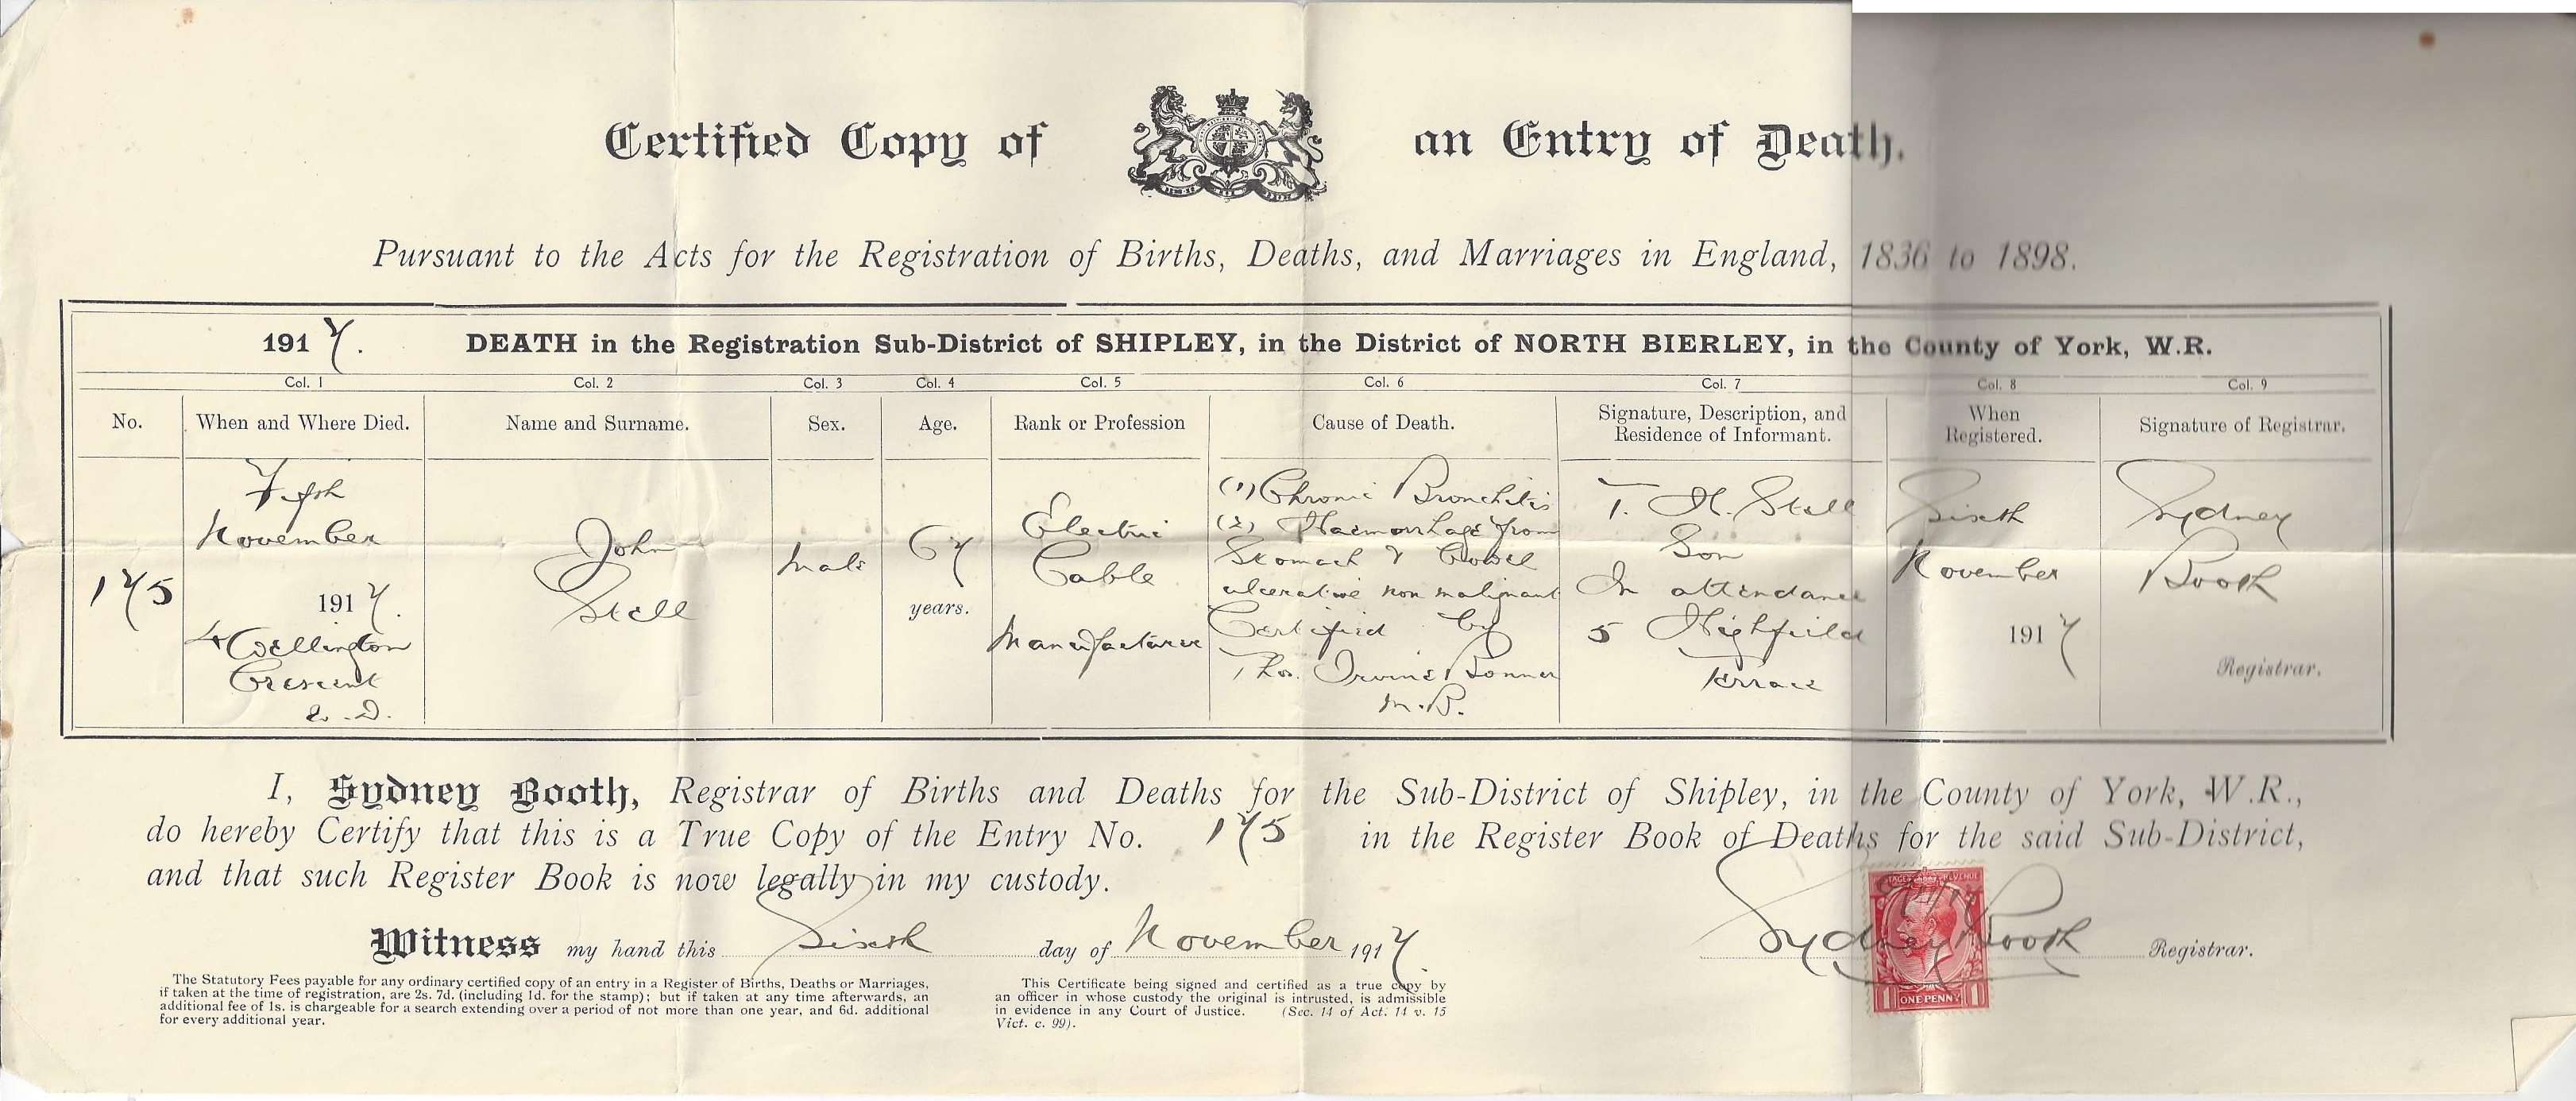 Certified Copy of an Entry of Death.
Pursuant to the Acts for the Registration of Births, Deaths, and Marriages in England, 1836 to 1898.
1917. DEATH in the Registration Sub-District of SHIPLEY, in the District of NORTH BIERLEY, in the County of York, W.R.
Col. 1 Col. 2 Col. 3 Col. 4 Col. 5 Col. 6 Col. 7 Col. 8 Col. 9
No.
When and Where Died.
Name and Surname.
Sex.
Age.
Rank or Profession
Cause of Death.
Signature, Description, and
Residence of Informant.
When
Registered.
Signature of Registrar.
175
Fifth
November
1917.
4 Wellington
Crescent
U.D.
John
Stell
Male
67
years.
Electric
Cable
Manufacturer
(1) Chronic Bronchitis
(2) Haemorrhage from
Stomach & Bowel
ulcerative non malignant
Certified by
Thos. Irvine Bonner
M.B.
T. H. Stell
Son
In attendance
5 Highfield
Terrace
Sixth
November
1917
Sydney
Booth
Registrar.
I, Sydney Booth, Registrar of Births and Deaths for the Sub-District of Shipley, in the County of York, W.R.,
do hereby Certify that this is a True Copy of the Entry No. 175 in the Register Book of Deaths for the said Sub-District,
and that such Register Book is now legally in my custody.
Witness my hand this Sixth day of November 1917. Sydney Booth Registrar.
The Statutory Fees payable for any ordinary certified copy of an entry in a Register of Births, Deaths or Marriages,
if taken at the time of registration, are 2s. 7d. (including 1d. for the stamp); but if taken at any time afterwards, an
additional fee of 1s. is chargeable for a search extending over a period of not more than one year, and 6d. additional
for every additional year.
This Certificate being signed and certified as a true copy by
an officer in whose custody the original is intrusted, is admissible
in evidence in any Court of Justice. (Sec. 14 of Act. 14 v. 15
Vict. c. 99).
POSTAGE REVENUE
1 ONE PENNY 1